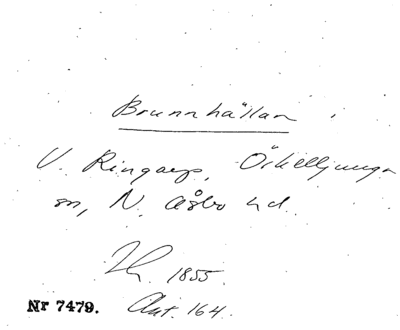 Brunnhällan
V. Ringarp, Örkelljunga
sn, N. Åsbo hd.
1855.
Nr 7479. Akt. 164.